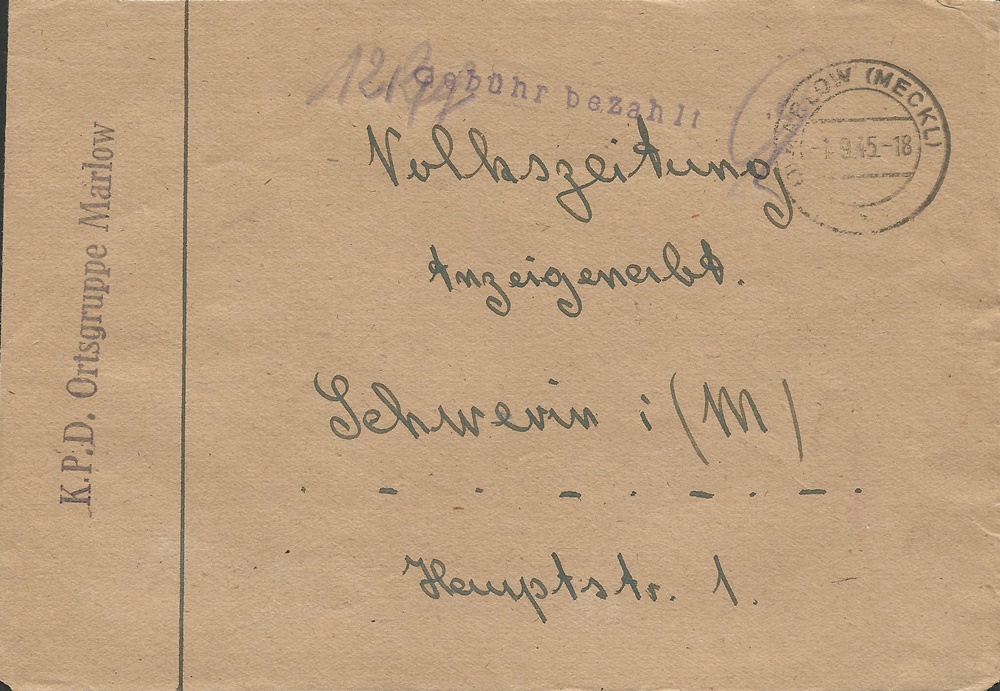 K.P.D. Ortsgruppe Marlow
12 Rpf
Gebühr bezahlt
MARLOW (MECKL)
-1.9.45.-18
Volkszeitung
Anzeigenabt.
Schwerin i (M)
Hauptstr. 1.